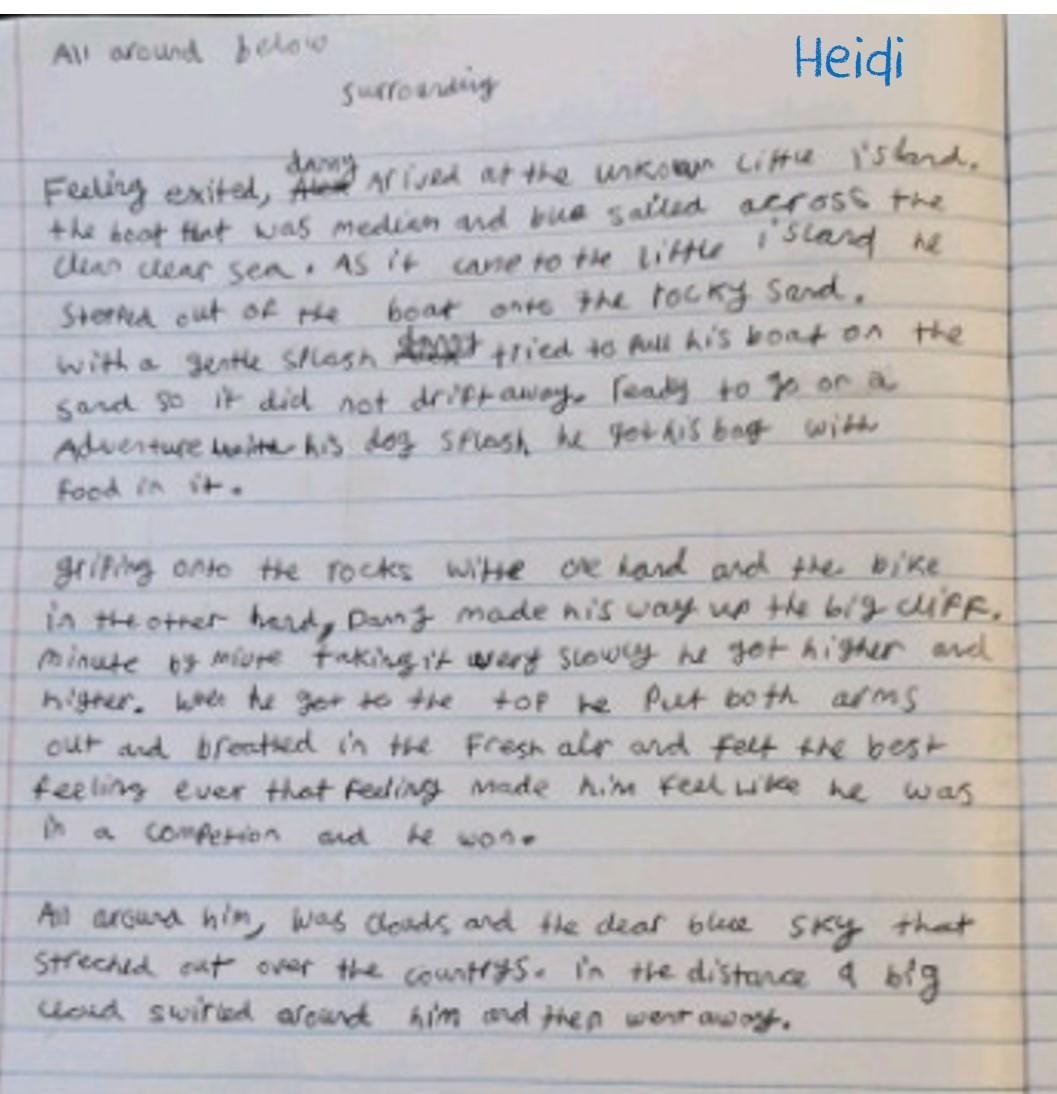 All around below
Heidi
surrounding
Feeling exited, danny Arived at the unkown little island.
the boat that was median and blue sailed across the
clear sea. As it came to the little island he
stopped out of the boat onto the rocky sand.
with a gentle splash tried to pull his boat on the
sand so it did not drift away. ready to go on a
Adventure his dog splash he got his bag with
food in it.
griping onto the rocks withe one hand and the bike
in the other hand, Danny made his way up the big cliff.
minute by miute taking it very slowly he got higher and
higher. when he got to the top he put both arms
out and breathed in the fresh air and felt the best
feeling ever that feeling made him feel like he was
in a competion and he won.
All around him, was clouds and the clear blue sky that
streched out over the countrys. in the distance a big
cloud swirled around him and then went away.